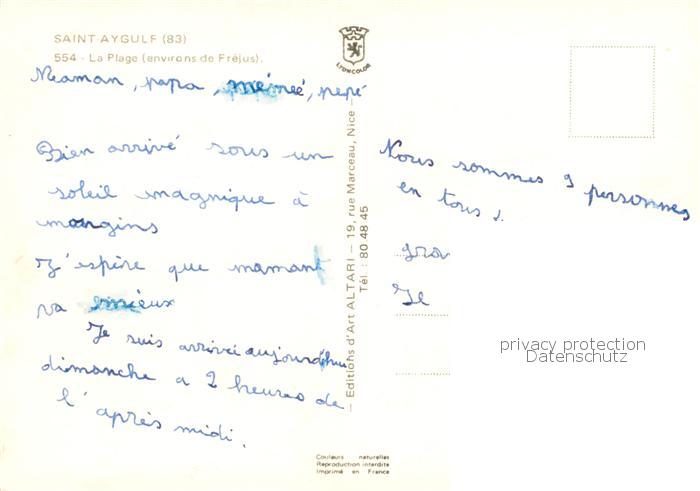 SAINT-AYGULF (83)
554 - La Plage (environs de Fréjus).
LYONCOLOR
Maman, papa, mémeé, pepé
Bien arrivé sous un
soleil magnique à
morgins
J'espère que mamant
va mieux
Je suis arrivé aujourdhui
dimanche a 2 heures de
l'après midi.
— Editions d'Art ALTARI — 19, rue Marceau, Nice —
Tél : 80 48 45
Nous sommes 9 personnes
en tous.
gra
Je
privacy protection
Datenschutz
Couleurs naturelles
Reproduction interdite
Imprimé en France